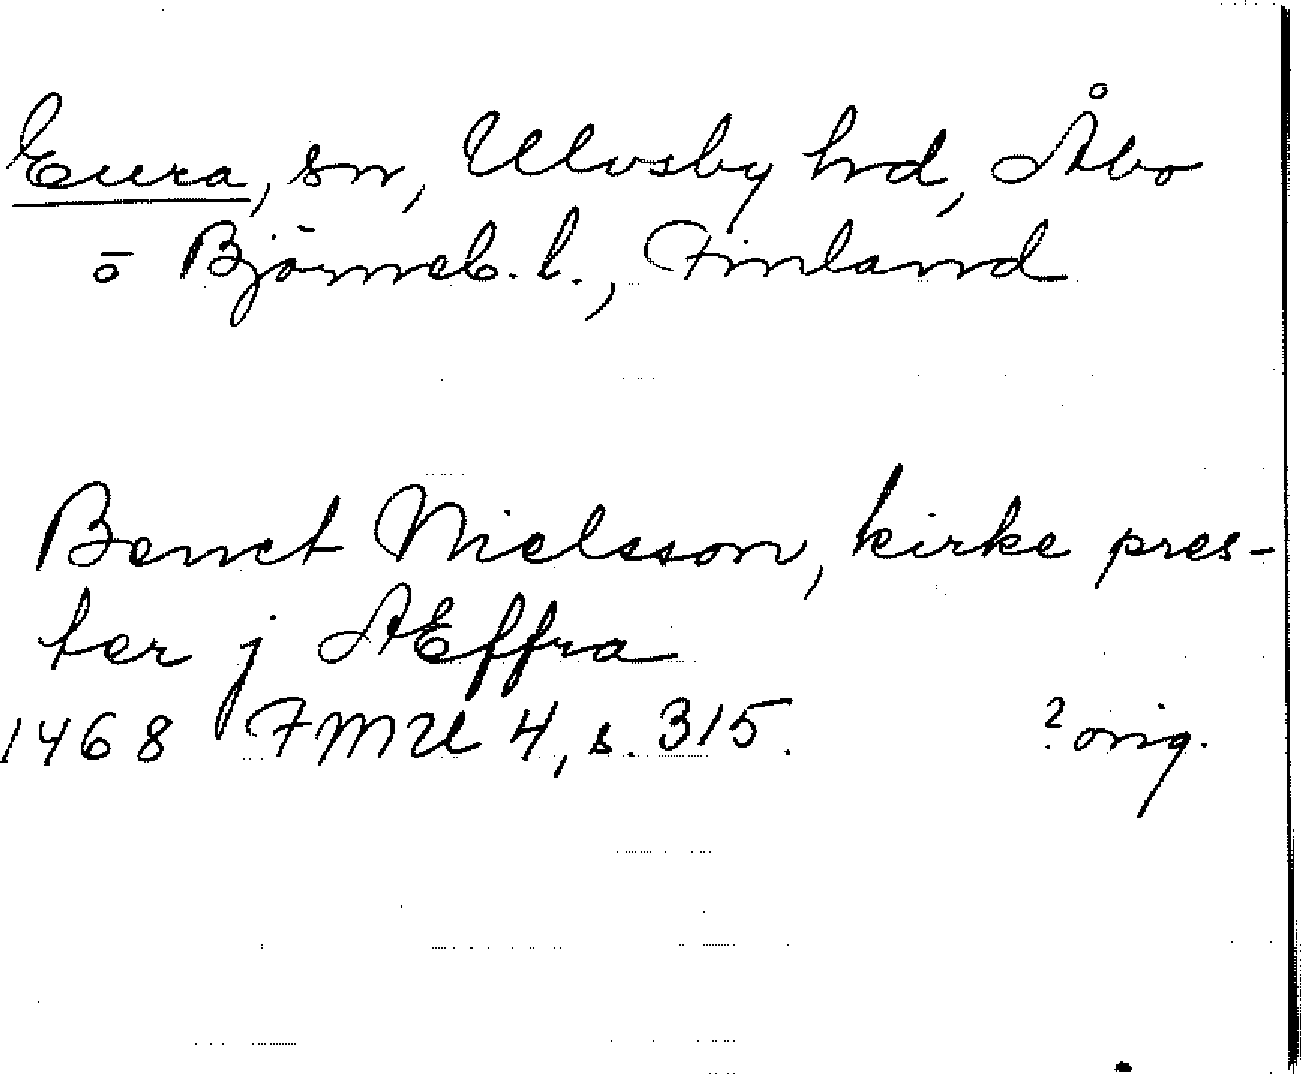 Eura, sn, Ulvsby hrd, Åbo
o Björneb. l., Finland
Benct Nielsson, kirke pres-
ter j Æffra
1468 FMU 4, s. 315. ? orig.